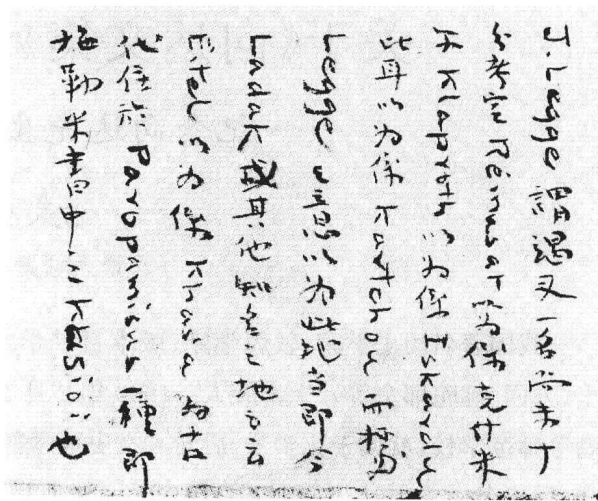 J. Legge 謂竭叉一名尚未十
分考定 Rémusat 以为係克什米
尔 Klaproth 以为係 Iskardu
比耳以为係 Kartchou 而
Legge 之意以为此地当即今
Ladak 或其他知名之地方云
Eitel 以为係 Khasa 为古
代住於 Paropamisus 一種即
勒米書中之 Kasioi 也